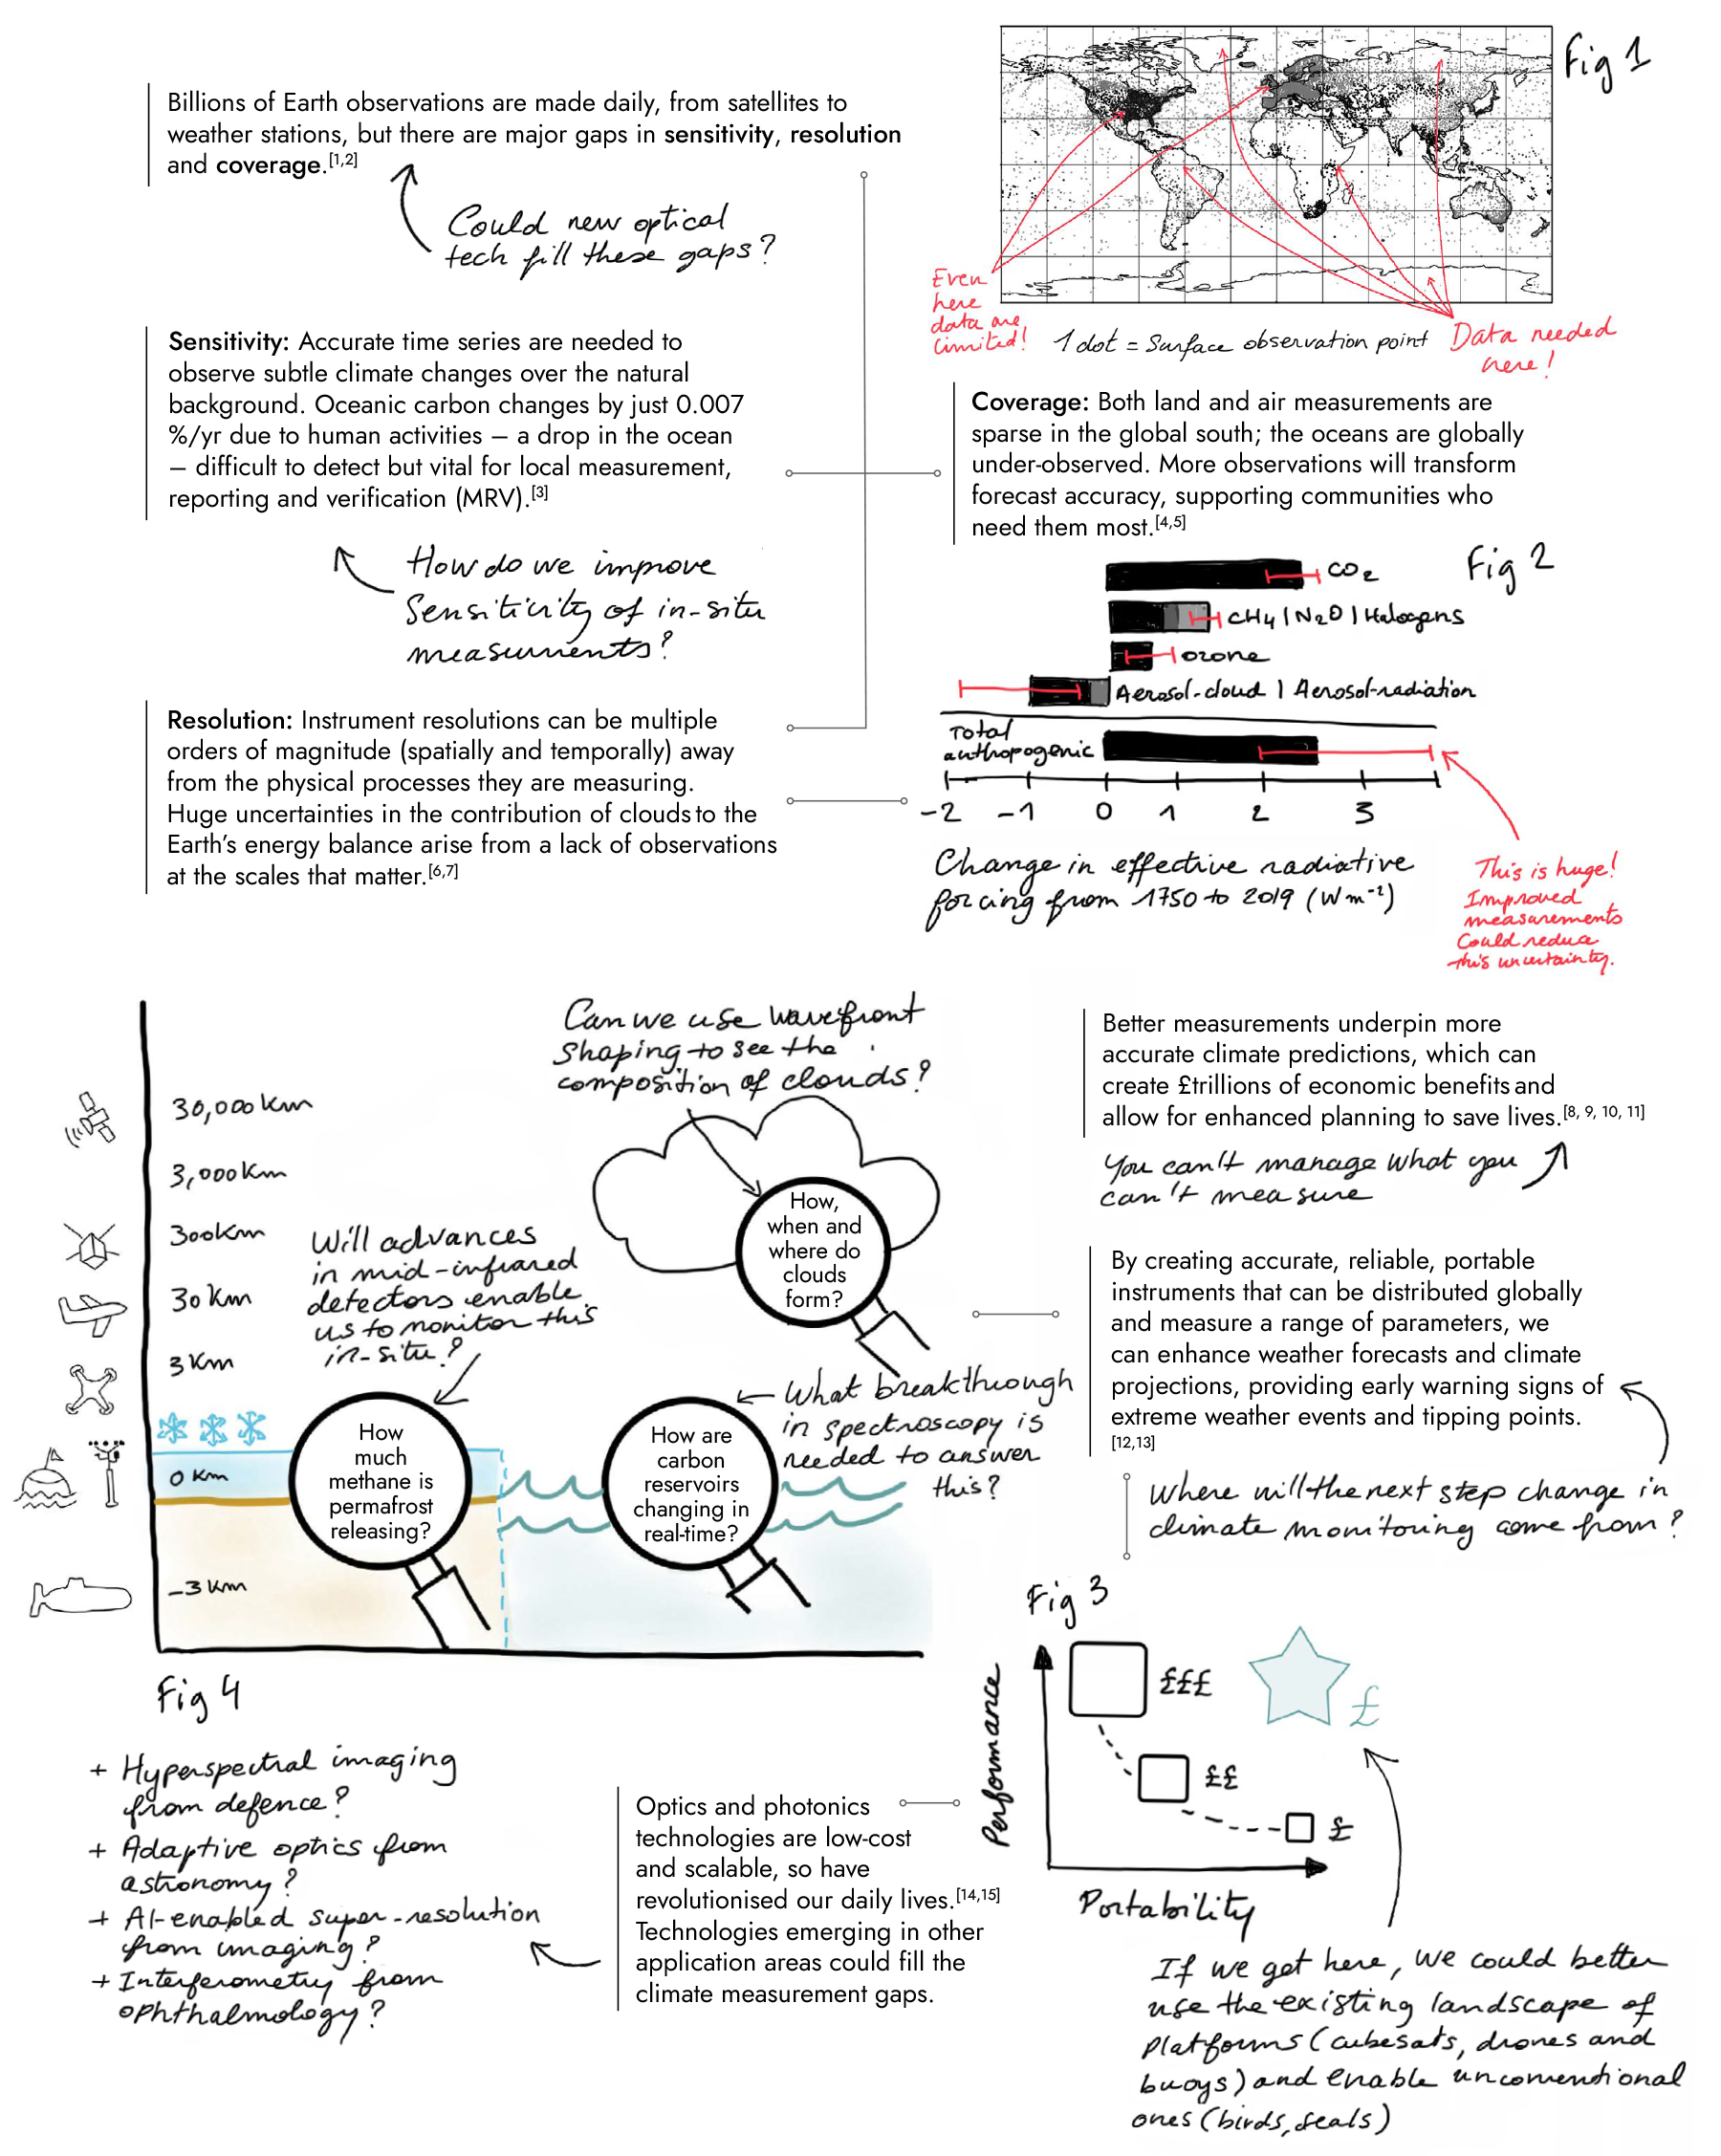 Billions of Earth observations are made daily, from satellites to
weather stations, but there are major gaps in sensitivity, resolution
and coverage.[1,2]
Could new optical
tech fill these gaps?
Fig 1
Even
here
data are
limited!
1 dot = Surface observation point
Data needed
here!
Sensitivity: Accurate time series are needed to
observe subtle climate changes over the natural
background. Oceanic carbon changes by just 0.007
%/yr due to human activities – a drop in the ocean
– difficult to detect but vital for local measurement,
reporting and verification (MRV).[3]
How do we improve
Sensiticity of in-situ
measurments?
Coverage: Both land and air measurements are
sparse in the global south; the oceans are globally
under-observed. More observations will transform
forecast accuracy, supporting communities who
need them most.[4,5]
Fig 2
CO2
CH4 | N2O | Halogens
ozone
Aerosol-cloud | Aerosol-radiation
Total
anthopogenic
-2 -1 0 1 2 3
Change in effective radiative
forcing from 1750 to 2019 (Wm-2)
This is huge!
Improved
measurements
Could reduce
this uncertainty.
Resolution: Instrument resolutions can be multiple
orders of magnitude (spatially and temporally) away
from the physical processes they are measuring.
Huge uncertainties in the contribution of clouds to the
Earth's energy balance arise from a lack of observations
at the scales that matter.[6,7]
Can we use wavefront
Shaping to see the
composition of clouds?
30,000 Km
3,000 Km
300 Km
30 Km
3 Km
0 Km
-3 Km
Will advances
in mid-infrared
detectors enable
us to monitor this
in-situ?
How,
when and
where do
clouds
form?
What breakthrough
in spectroscopy is
needed to answer
this?
How
much
methane is
permafrost
releasing?
How are
carbon
reservoirs
changing in
real-time?
Fig 4
Better measurements underpin more
accurate climate predictions, which can
create £trillions of economic benefits and
allow for enhanced planning to save lives.[8, 9, 10, 11]
You can't manage what you
can't measure
By creating accurate, reliable, portable
instruments that can be distributed globally
and measure a range of parameters, we
can enhance weather forecasts and climate
projections, providing early warning signs of
extreme weather events and tipping points.
[12,13]
Where will the next step change in
climate monitoring come from?
Fig 3
Performance
£££
££
£
£
Portability
If we get here, we could better
use the existing landscape of
platforms (cubesats, drones and
buoys) and enable unconventional
ones (birds, seals)
+ Hyperspectral imaging
from defence?
+ Adaptive optics from
astronomy?
+ AI-enabled super-resolution
from imaging?
+ Interferometry from
ophthalmology?
Optics and photonics
technologies are low-cost
and scalable, so have
revolutionised our daily lives.[14,15]
Technologies emerging in other
application areas could fill the
climate measurement gaps.